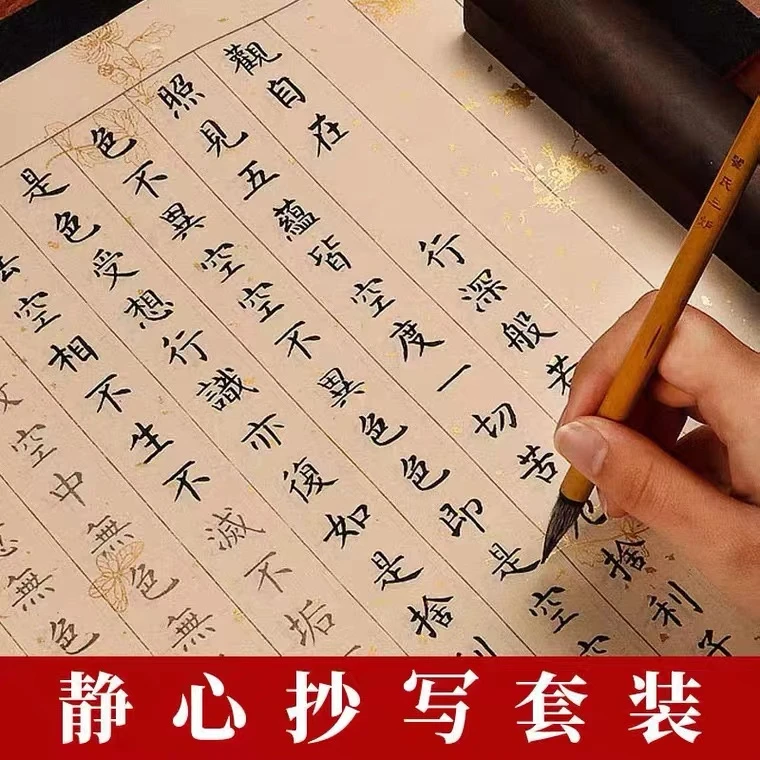 觀自在 行深般若
照見五蘊皆空度一切苦厄捨利子
色不異空空不異色色即是空空
是色受想行識亦復如是捨利
空相不生不滅不垢
空中無色無
無色
静心抄写套装